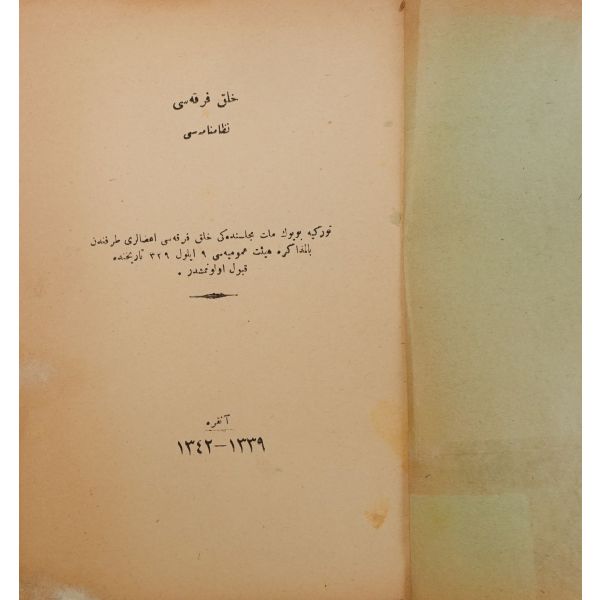 خلق فرقه‌سی
نظامنامه‌سی
تورکیه بویوك ملت مجلسنده‌کی خلق فرقه‌سی اعضالری طرفندن
بالمذاکره هیئت عمومیه‌سی ٩ ایلول ٣٣٩ تاریخنده
قبول اولونمشدر .
آنقره
١٣٣٩-١٣٤٢